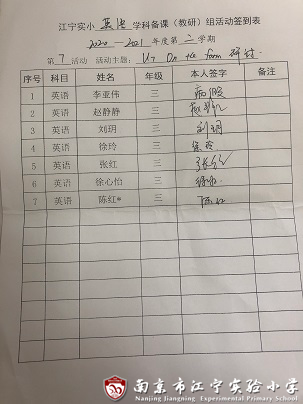 江宁实小 英语 学科备课（教研）组活动签到表
2020—2021 年度第 二 学期
第 7 活动 活动主题： U7 On the farm 研讨
序号 科目 姓名 年级 本人签字 备注
1 英语 李亚伟 三
2 英语 赵静静 三
3 英语 刘玥 三 刘玥
4 英语 徐玲 三 徐玲
5 英语 张红 三 张红
6 英语 徐心怡 三
7 英语 陈红* 三 陈红
南京市江宁实验小学
Nanjing Jiangning Experimental Primary School